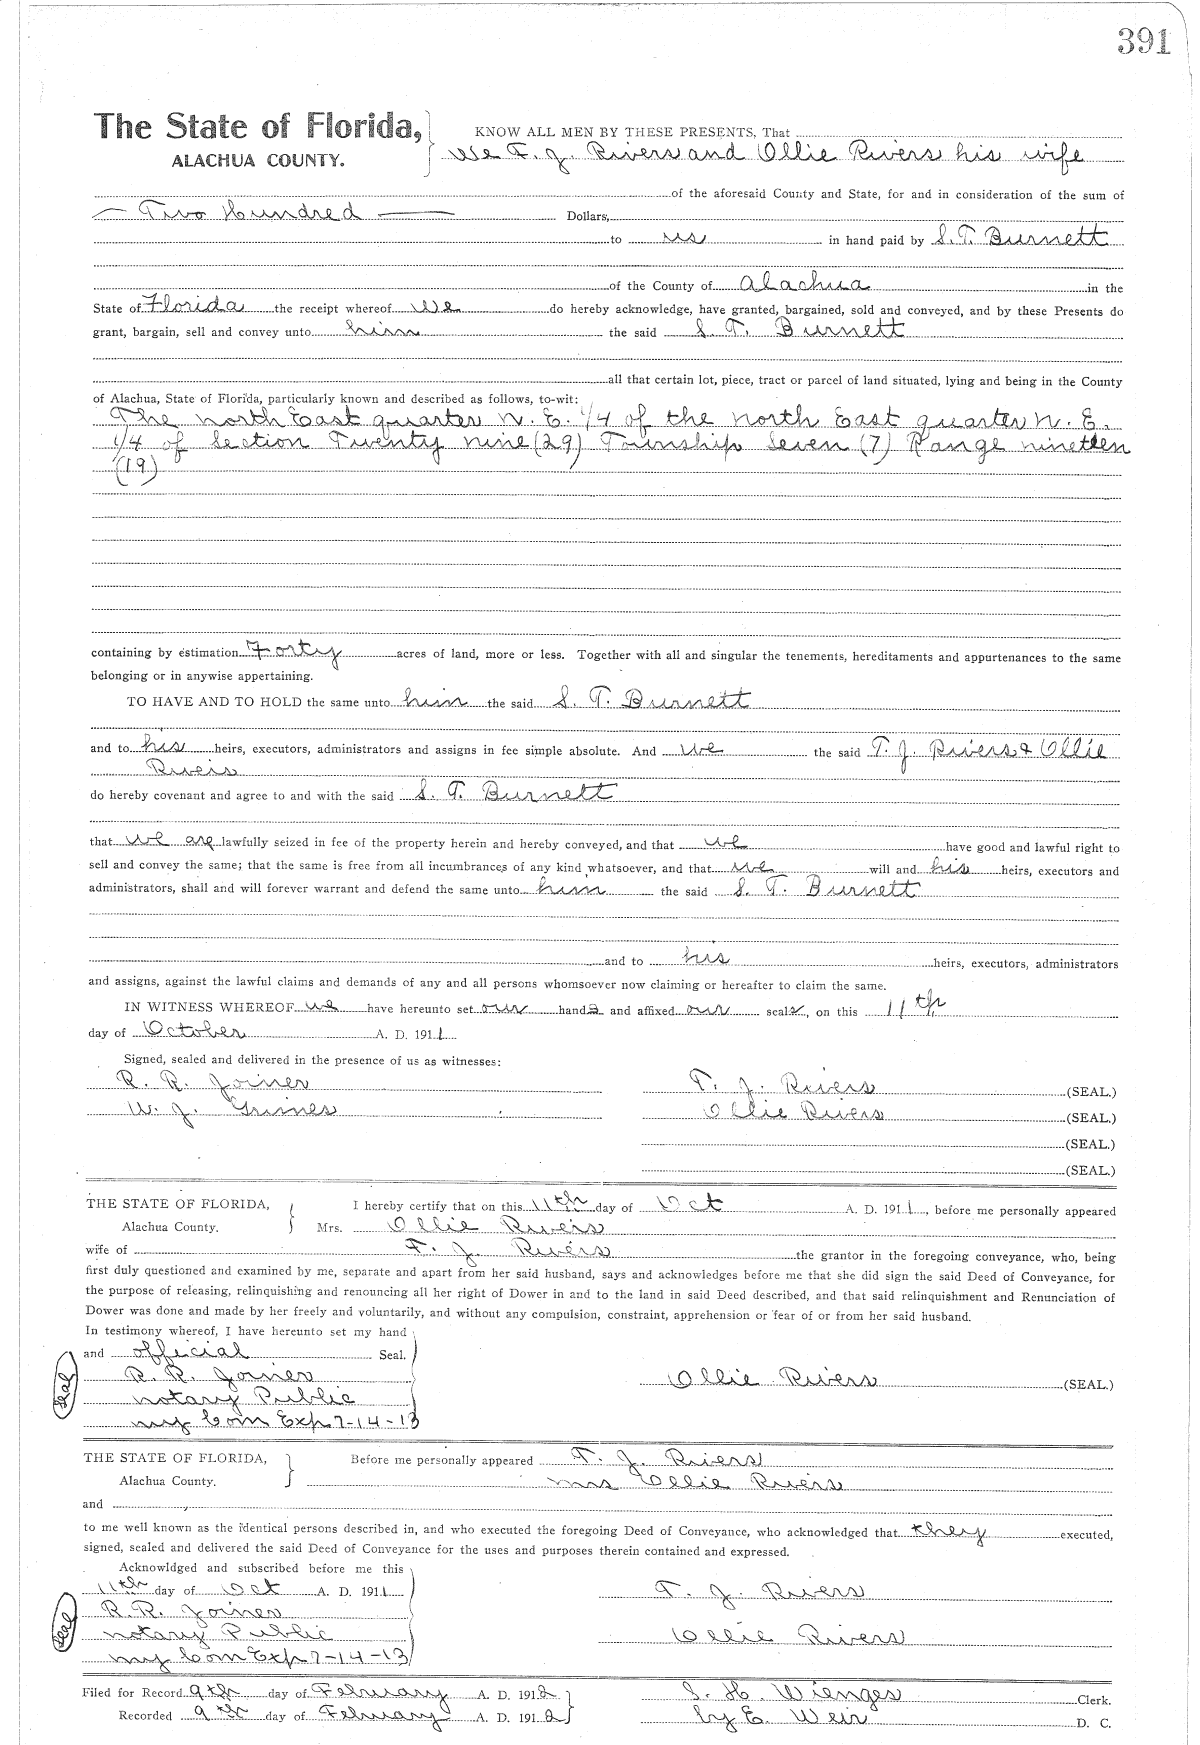 391
The State of Florida,
ALACHUA COUNTY.
KNOW ALL MEN BY THESE PRESENTS, That
We T. J. Rivers and Ollie Rivers his wife
of the aforesaid County and State, for and in consideration of the sum of
Two Hundred Dollars,
to us in hand paid by S. T. Burnett
of the County of Alachua in the
State of Florida the receipt whereof we do hereby acknowledge, have granted, bargained, sold and conveyed, and by these Presents do
grant, bargain, sell and convey unto him the said S. T. Burnett
all that certain lot, piece, tract or parcel of land situated, lying and being in the County
of Alachua, State of Florida, particularly known and described as follows, to-wit:
The north East quarter N. E. 1/4 of the north East quarter N. E.
1/4 of Section Twenty nine (29) Township Seven (7) Range nineteen
(19)
containing by estimation Forty acres of land, more or less. Together with all and singular the tenements, hereditaments and appurtenances to the same
belonging or in anywise appertaining.
TO HAVE AND TO HOLD the same unto him the said S. T. Burnett
and to his heirs, executors, administrators and assigns in fee simple absolute. And we the said T. J. Rivers & Ollie
Rivers
do hereby covenant and agree to and with the said S. T. Burnett
that we are lawfully seized in fee of the property herein and hereby conveyed, and that we have good and lawful right to
sell and convey the same; that the same is free from all incumbrances of any kind whatsoever, and that we will and his heirs, executors and
administrators, shall and will forever warrant and defend the same unto him the said S. T. Burnett
and to his heirs, executors, administrators
and assigns, against the lawful claims and demands of any and all persons whomsoever now claiming or hereafter to claim the same.
IN WITNESS WHEREOF we have hereunto set our hands and affixed our seals, on this 11th
day of October A. D. 1911
Signed, sealed and delivered in the presence of us as witnesses:
R. R. Joiner T. J. Rivers (SEAL.)
W. J. Grimes Ollie Rivers (SEAL.)
(SEAL.)
(SEAL.)
THE STATE OF FLORIDA, I hereby certify that on this 11th day of Oct A. D. 1911, before me personally appeared
Alachua County. Mrs. Ollie Rivers
wife of T. J. Rivers the grantor in the foregoing conveyance, who, being
first duly questioned and examined by me, separate and apart from her said husband, says and acknowledges before me that she did sign the said Deed of Conveyance, for
the purpose of releasing, relinquishing and renouncing all her right of Dower in and to the land in said Deed described, and that said relinquishment and Renunciation of
Dower was done and made by her freely and voluntarily, and without any compulsion, constraint, apprehension or fear of or from her said husband.
In testimony whereof, I have hereunto set my hand
and official Seal.
Seal R. R. Joiner Ollie Rivers (SEAL.)
notary Public
my Com Exp 7-14-13
THE STATE OF FLORIDA, Before me personally appeared T. J. Rivers
Alachua County. mrs Ollie Rivers
and
to me well known as the identical persons described in, and who executed the foregoing Deed of Conveyance, who acknowledged that they executed,
signed, sealed and delivered the said Deed of Conveyance for the uses and purposes therein contained and expressed.
Acknowldged and subscribed before me this
11th day of Oct A. D. 1911 T. J. Rivers
Seal R. R. Joiner
notary Public Ollie Rivers
my Com Exp 7-14-13
Filed for Record 9th day of February A. D. 1912 S. H. Wienges Clerk.
Recorded 9th day of February A. D. 1912 by E. Weir D. C.